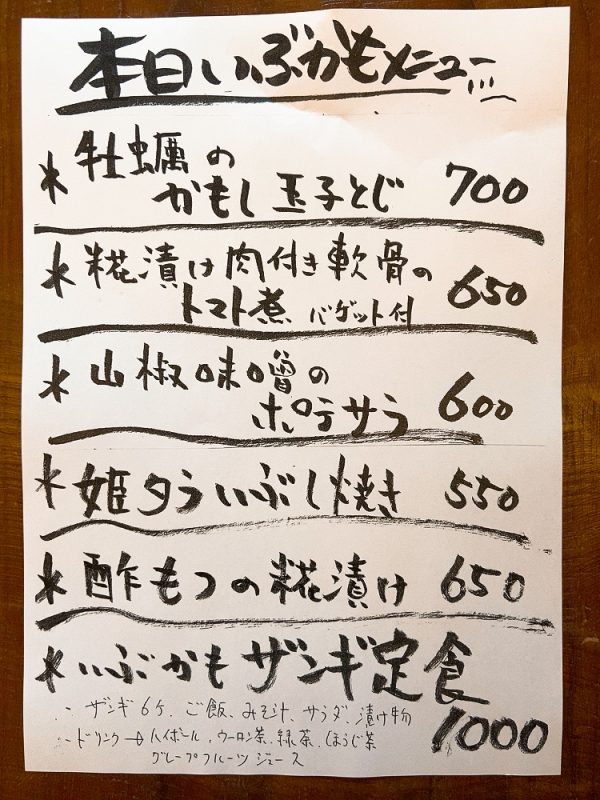 本日いぶかもメニュー
* 牡蠣の
かもし玉子とじ 700
* 糀漬け肉付き軟骨の
トマト煮 バゲット付 650
* 山椒味噌の
ポテサラ 600
* 姫タラいぶし焼き 550
* 酢もつの糀漬け 650
* いぶかもザンギ定食
- ザンギ6ケ、ご飯、みそ汁、サラダ、漬け物
1000
- ドリンク→ハイボール、ウーロン茶、緑茶、ほうじ茶
グレープフルーツジュース